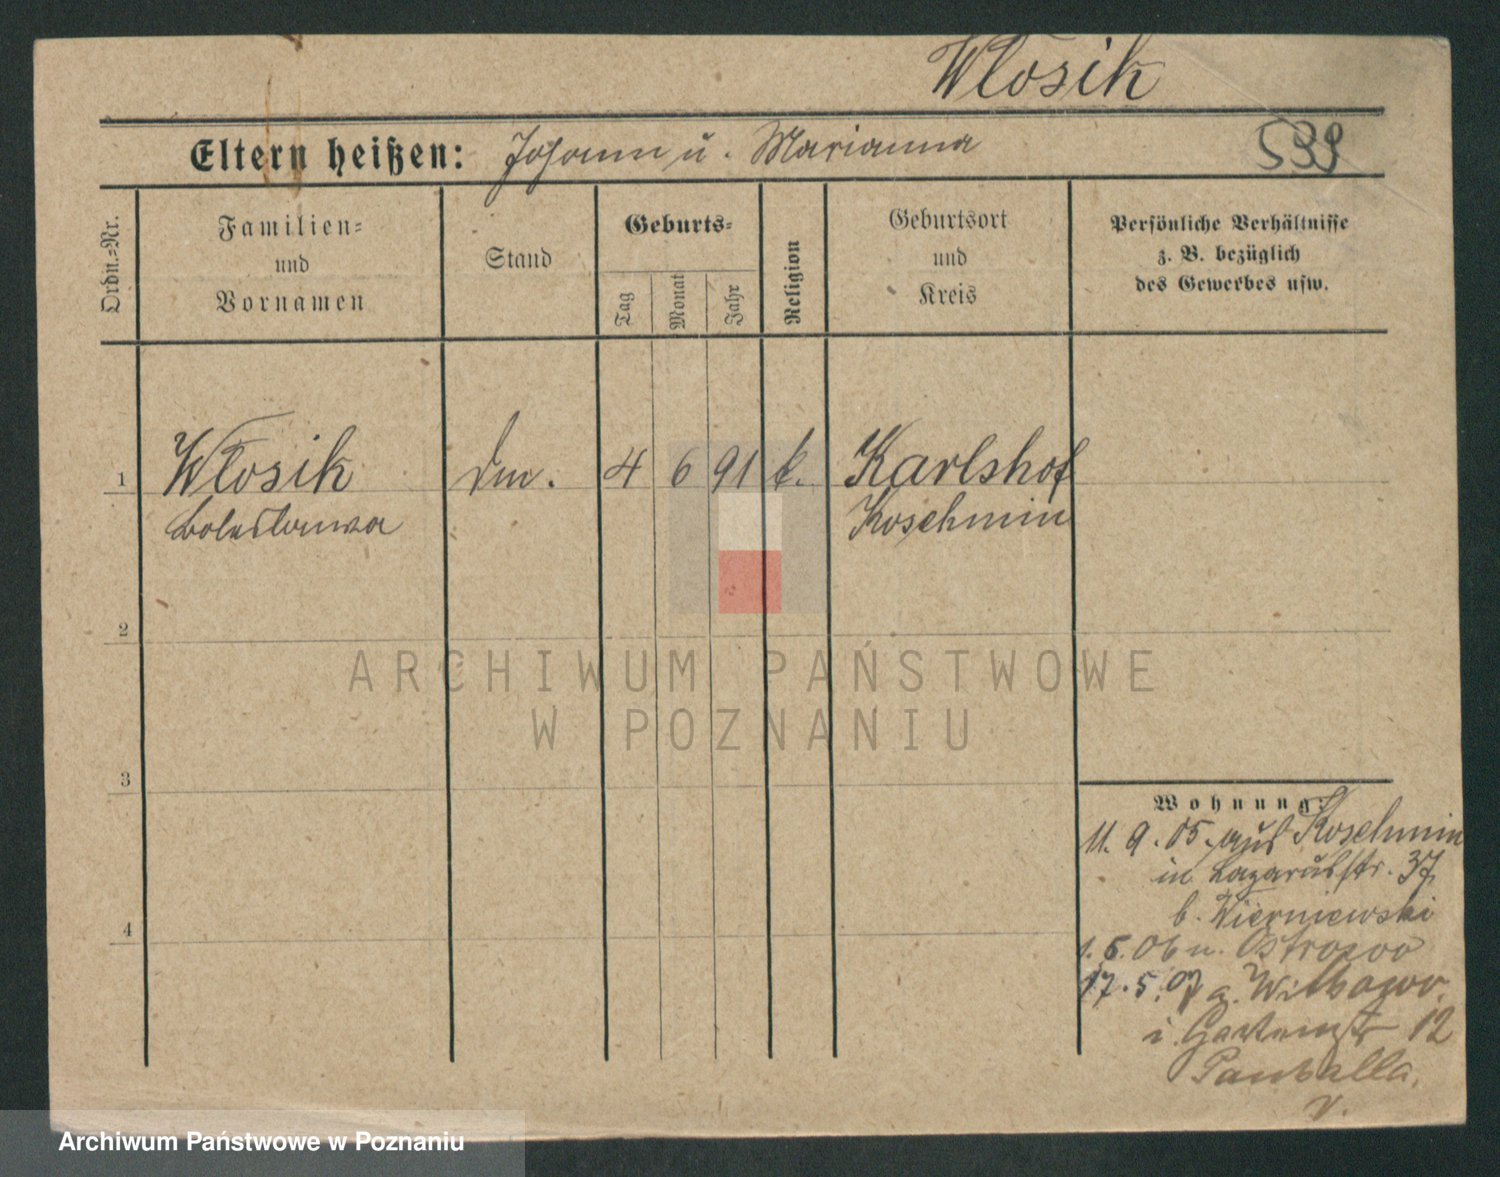 Włosik
Eltern heißen: Johann u. Marianna
539
Ordn.-Nr.
Familien- und Vornamen
Stand
Geburts-
Tag
Monat
Jahr
Religion
Geburtsort und Kreis
Persönliche Verhältnisse z. B. bezüglich des Gewerbes usw.
1 Włosik 4 6 91 k. Karlshof
Boleslawa Koschmin
2
ARCHIWUM PAŃSTWOWE
W POZNANIU
3
Wohnung:
11. 9. 05. aus Koschmin
in Lazarusstr. 37
b. Wierniewski
4
1. 5. 06 n. Ostrowo
17. 5. 07 a.
i. Gartenstr 12
v.
Archiwum Państwowe w Poznaniu